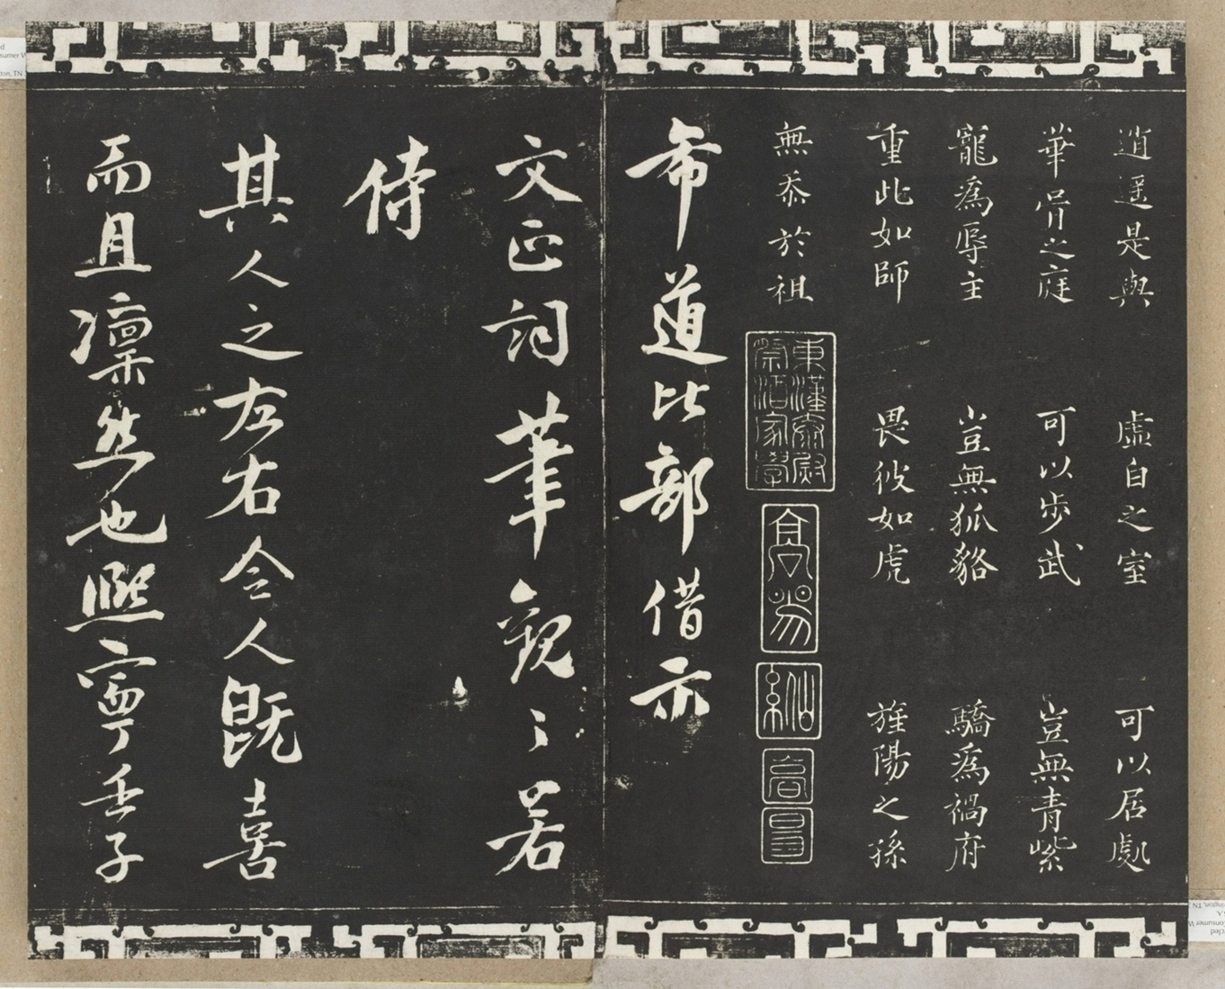 逍遥是與 虛白之室 可以居處
華胥之庭 可以步武 豈無青紫
寵爲辱主 豈無狐貉 驕爲禍府
重此如師 畏彼如虎 旌陽之孫
無忝於祖
東漢太尉
祭酒家學
希道比部借示
文正詞筆觀之若
侍
其人之左右令人既喜
而且凛然也熙寧壬子